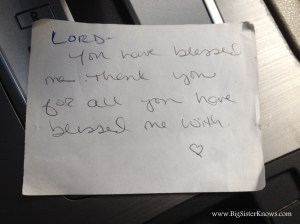 LORD-
You have blessed
me thank you
for all you have
blessed me with
♡
www.BigSisterKnows.com